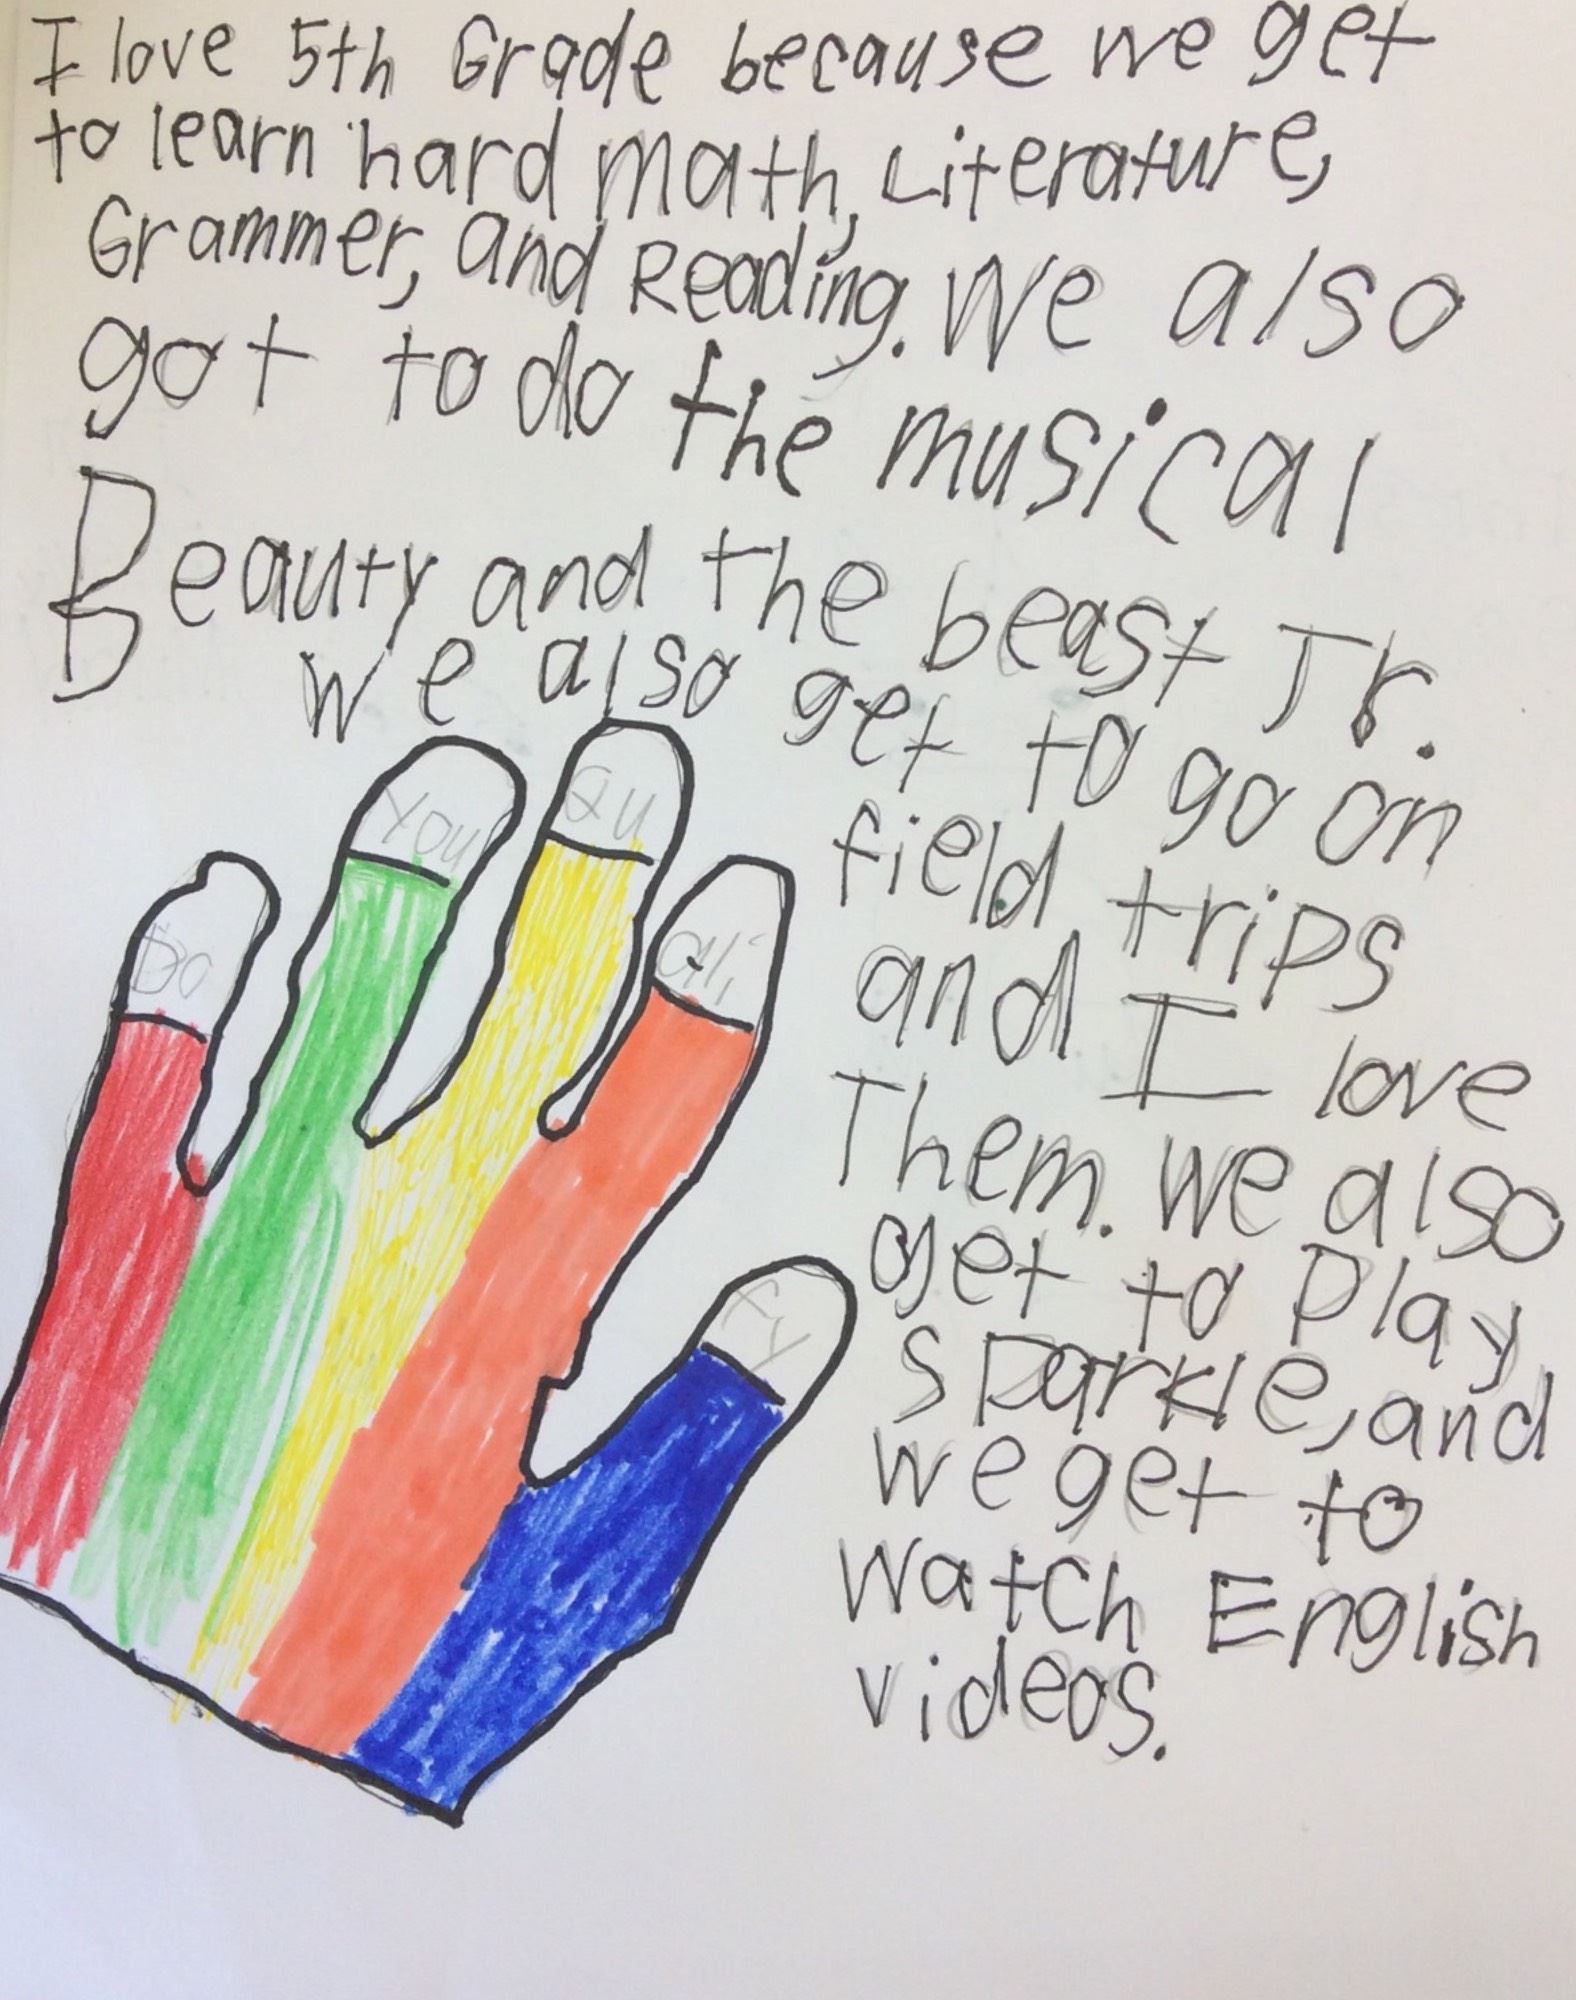 I love 5th Grade because we get
to learn hard math, Literature,
Grammer, and Reading. We also
got to do the musical
Beauty and the beast Jr.
We also get to go on
field trips
and I love
Them. We also
get to Play
Sparkle, and
we get to
Watch English
videos.
Do
You
Qu
ali
Fy